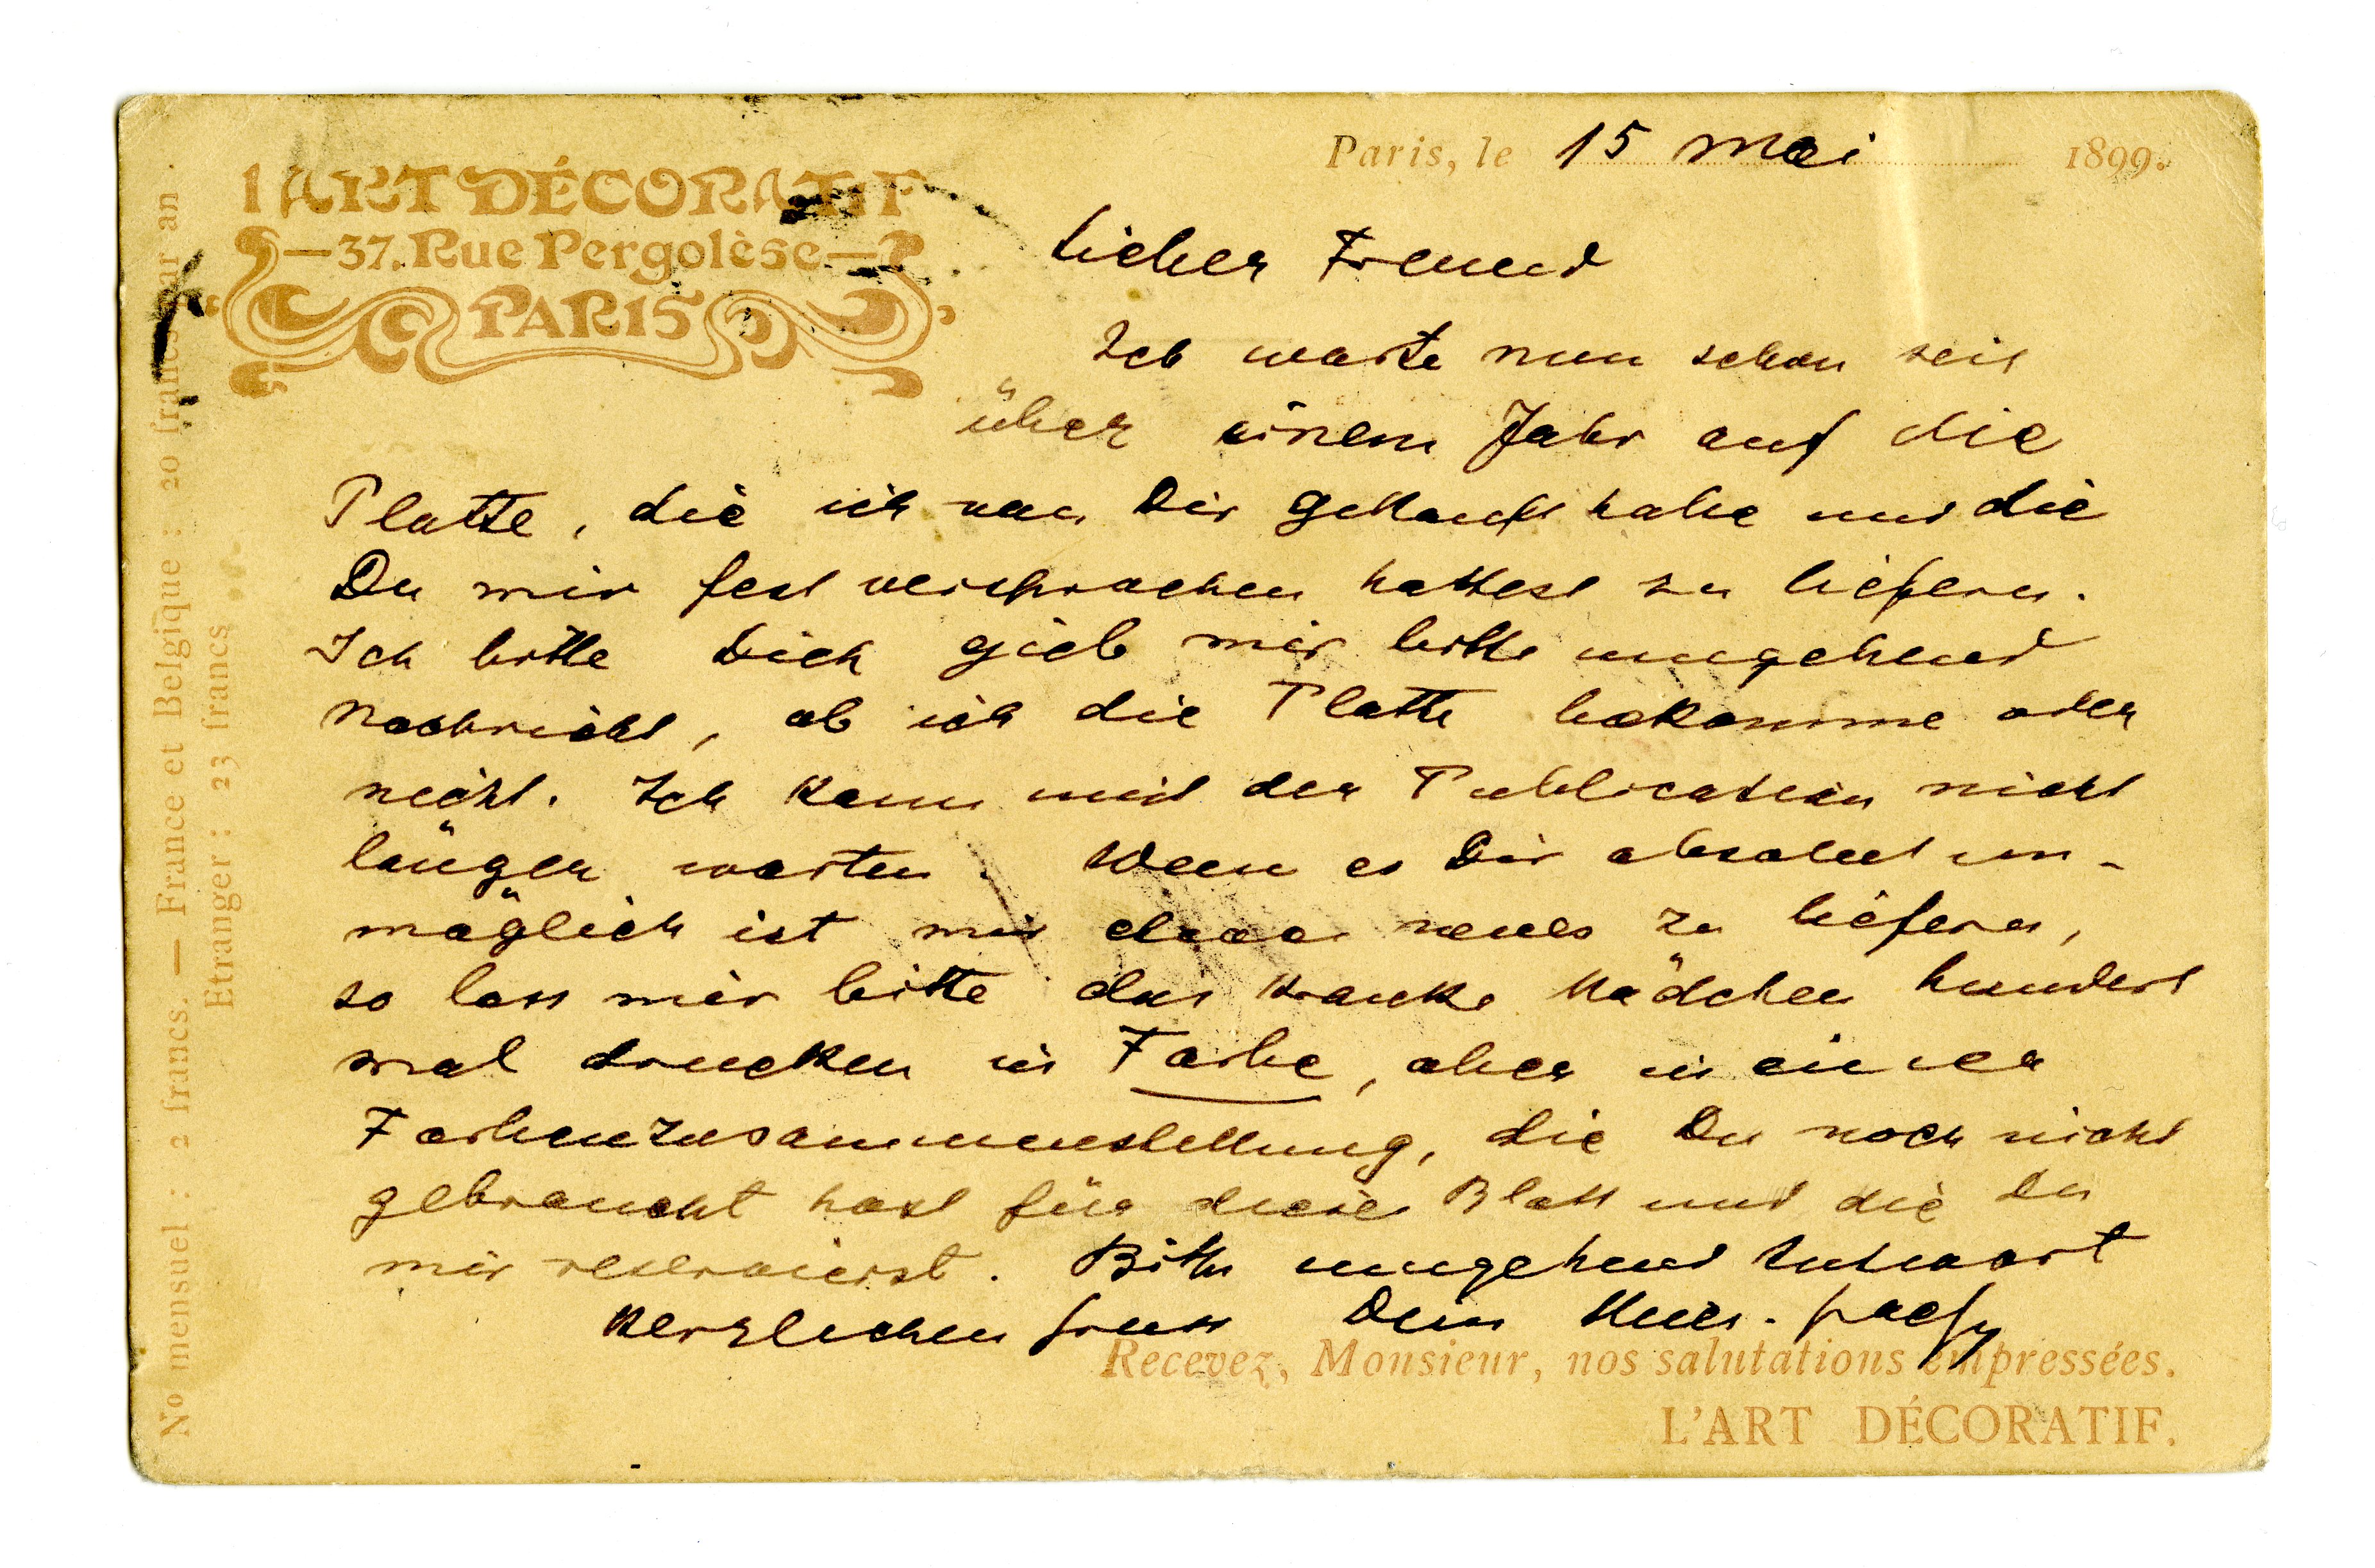 L'ART DÉCORATIF
—37. Rue Pergolèse—
PARIS
Paris, le 15 Mai 1899.
Lieber Freund
Ich warte nun schon seit
über einem Jahr auf die
Platte, die ich von Dir gekauft habe und die
Du mir fest versprochen hattest zu liefern.
Ich bitte Dich gieb mir bitte umgehend
Nachricht, ob ich die Platte bekomme oder
nicht. Ich kann mit der Publication nicht
länger warten. Wenn es Dir absolut un-
möglich ist mir etwas neues zu liefern,
so lass mir bitte das kranke Mädchen hundert
mal drucken in Farbe, aber in einer
Farbenzusammenstellung, die Du noch nicht
gebraucht hast für dieses Blatt und die Du
mir reservierst. Bitte umgehend Antwort
Herzlichen Gruss Dein
Recevez, Monsieur, nos salutations empressées.
L'ART DÉCORATIF.
No mensuel : 2 francs. — France et Belgique : 20 francs par an.
Etranger : 23 francs